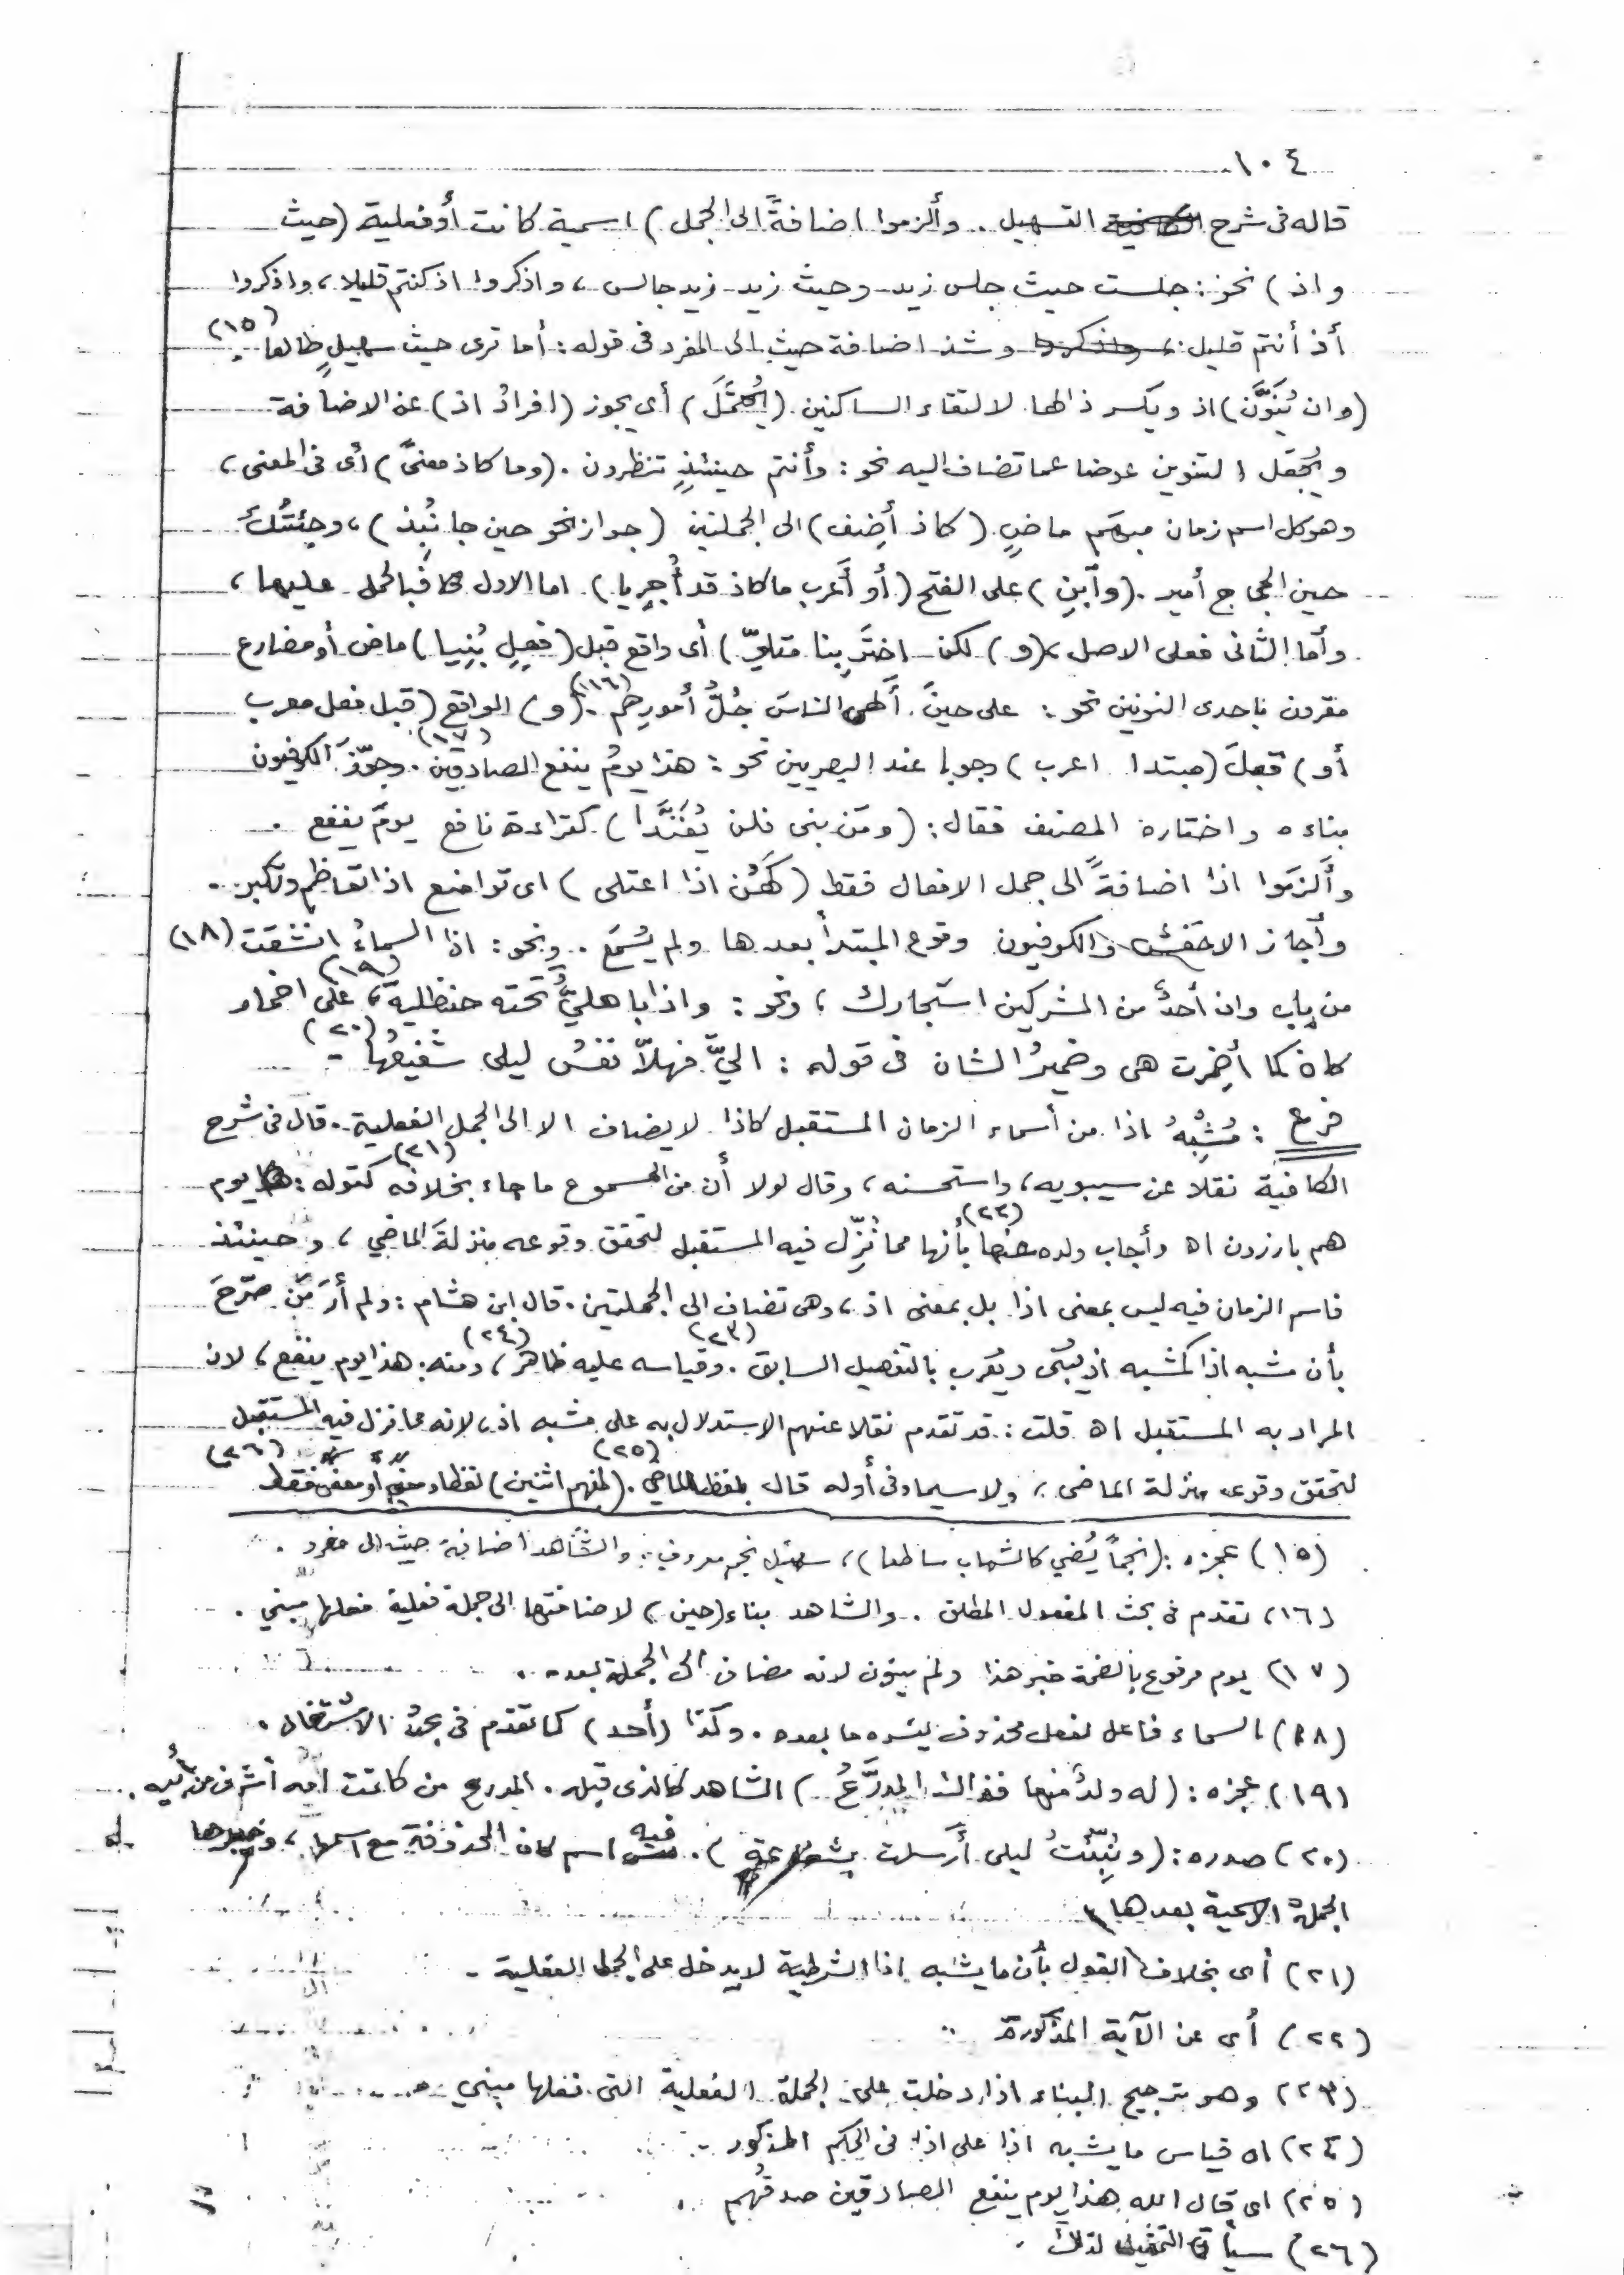 ١٠٤
قاله فى شرح التسهيل . وألزموا اضافةً الى الجمل ) اسمية كانت أو فعلية (حيث
واذ ) نحو : جلست حيث جلس زيد - وحيث زيد - زيد جالس ، واذكروا اذ كنتم قليلا ، واذكروا
أذ أنتم قليل ، وشذ اضافة حيث الى المفرد فى قوله : أما ترى حيث سهيلٍ طالعا (١٥)
(وان يُنَوَّن ) اذ ويكسر ذالها لالتقاء الساكنين (يُحْتَمَلَ ) أى يجوز (افرادُ اذ ) عن الاضافة
ويُجْعَل التنوين عوضا عما تضاف اليه نحو : وأنتم حينئذٍ تنظرون . (وما كاذ معنىً ) أى فى المعنى ،
وهو كل اسم زمان مبهَم ماضٍ (كاذ أَضِف ) الى الجملتين (جوازا نحو حين جا نُبِذ ) ، وجئتُك
حين الحجاج أمير . (وٱبنِ ) على الفتح (أو أَعرب ما كاذ قد أُجريا ) . اما الاول فبالحمل عليها ،
وأما الثانى فعلى الاصل ، (و) لكن اختَر بنا متلوّ ) أى واقع قبل (فعلٍ بُنِيا ) ماض أو مضارع
مقرون باحدى النونين نحو : على حينَ أَلهى الناسَ جُلُّ أمورِهم (١٦) . (و) الواقع (قبل فعل معرب
أو ) قَبلَ (مبتدا اعرب ) وجوبا عند البصريين نحو : هذا يومُ ينفع الصادقين (١٧) . وجوّزَ الكوفيون
بناءه واختاره المصنف فقال : (ومَن بنى فلن يُفَنَّدا ) كقراءة نافع يومَ ينفع .
وأَلزَموا اذا اضافةً الى جمل الافعال فقط (كَهُن اذا اعتلى ) اى تواضع اذا تعاظم وتكبر .
وأجاز الاخفش والكوفيون وقوع المبتدأ بعدها ولم يُسْمَع . ونحو : اذا السماءُ انشقت (١٨)
من باب وان أحدٌ من المشركين استجارك ، ونحو : واذا باهليٌّ تحته حنظليةٌ (١٩) ، على اضمار
كان كما أُضمِرت هى وضميرُ الشان فى قوله : اليّ فهلاّ نفسُ ليلى شفيعُها (٢٠) -
فرع : مُشْبِهُ اذا من أسماء الزمان المستقبل كاذا لا يضاف الا الى الجمل الفعلية . قال فى شرح
الكافية نقلا عن سيبويه ، واستحسنه ، وقال لولا أن من المسموع ما جاء بخلافه (٢١) كقوله : يوم
هم بارزون اه وأجاب ولده عنها (٢٢) بأنها مما نُزِّل فيه المستقبل لتحقق وقوعه منزلةَ الماضي ، وحينئذ
فاسم الزمان فيه ليس بمعنى اذا بل بمعنى اذ ، وهى تضاف الى الجملتين . قال ابن هشام : ولم أرَ مَن صرّحَ
بأن مشبه اذا كمشبه اذ يُبنى ويُعرب بالتفصيل السابق (٢٣) . وقياسه عليه ظاهر (٢٤) ، ومنه هذا يوم ينفع ، لان
المراد به المستقبل اه قلت : قد تقدم نقلا عنهم الاستدلال به على مشبه اذ ، لانه مما نزل فيه المستقبل
لتحقق وقوعه منزلة الماضى ، ولا سيما وفى أوله قال بلفظ الماضي (٢٥) . (لمفهم اثنين ) لفظا ومعنى أو معنى فقط (٢٦)
(١٥) عجزه : (نجماً يُضي كالشهاب ساطعا ) ، سهيل نجم معروف . والشاهد اضافة حيث الى مفرد .
(١٦) تقدم فى بحث المفعول المطلق . والشاهد بناء (حين ) لاضافتها الى جملة فعلية فعلها مبني .
(١٧) يوم مرفوع بالضمة خبر هذا ولم ينون لانه مضاف الى الجملة بعده .
(١٨) السماء فاعل لفعل محذوف يفسره ما بعده . وكذا (أحد ) كما تقدم فى بحث الاشتغال .
(١٩) عجزه : (له ولدٌ منها فذاك المدرَّعُ ) الشاهد كالذى قبله . المدرع من كانت امه أشرف من أبيه .
(٢٠) صدره : (ونُبِّئتُ ليلى أَرسلت بشفاعة ) . فيه اسم كان المحذوفة مع اسمها ، وخبرها
الجملة الاسمية بعدها
(٢١) أى بخلاف القول بأن ما يشبه اذا الشرطية لا يدخل على الجمل الفعلية .
(٢٢) أى عن الآية المذكورة .
(٢٣) وهو ترجيح البناء اذا دخلت على الجملة الفعلية التى فعلها مبني .
(٢٤) اه قياس ما يشبه اذا على اذ فى الحكم المذكور .
(٢٥) اى قال الله هذا يوم ينفع الصادقين صدقُهم .
(٢٦) سيأتى التمثيل لذلك .